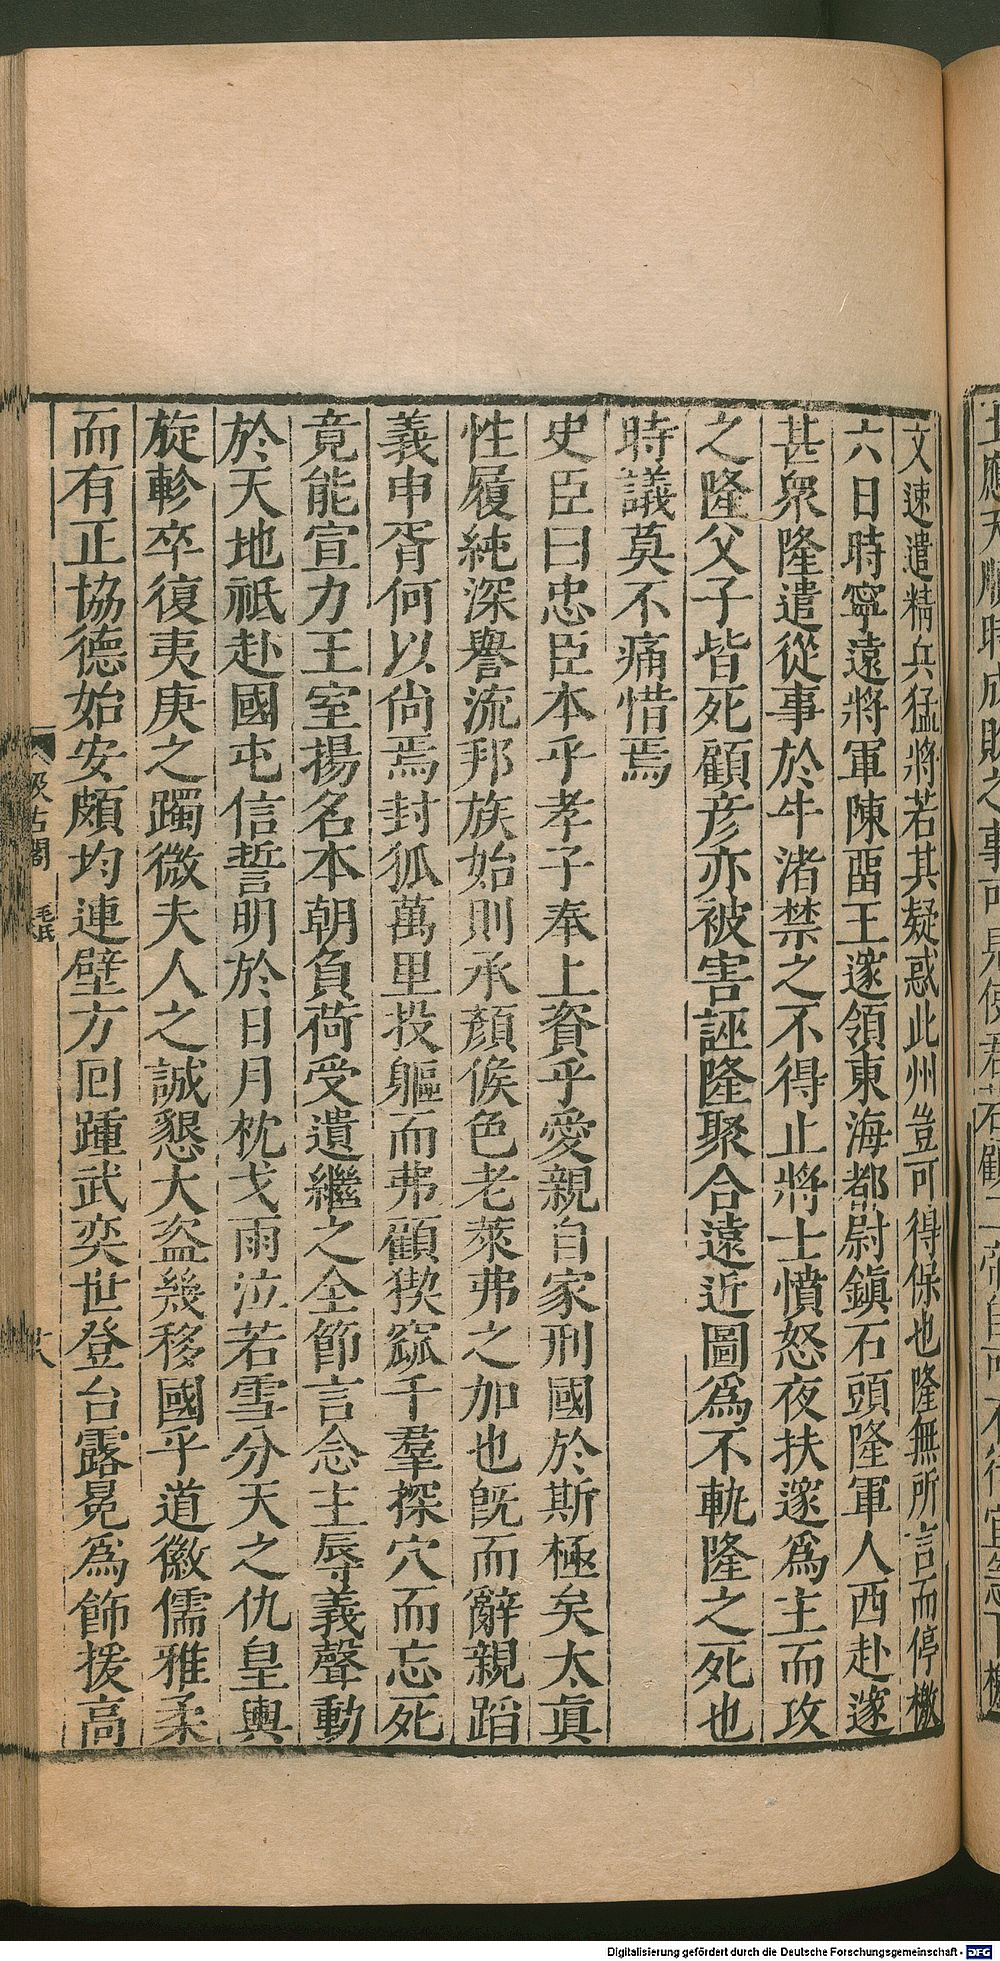 文速遣精兵猛將若其疑惑此州豈可得保也隆無所言而停檄
六日時寧遠將軍陳留王邃領東海都尉鎮石頭隆軍人西赴邃
甚衆隆遣從事於牛渚禁之不得止將士憤怒夜扶邃爲主而攻
之隆父子皆死顧彦亦被害誣隆聚合遠近圖爲不軌隆之死也
時議莫不痛惜焉
史臣曰忠臣本乎孝子奉上資乎愛親自家刑國於斯極矣太眞
性履純深譽流邦族始則承顏候色老萊弗之加也旣而辭親蹈
義申胥何以尚焉封狐萬里投軀而弗顧猰窳千羣探穴而忘死
竟能宣力王室揚名本朝負荷受遺繼之全節言念主辱義聲動
於天地祇赴國屯信誓明於日月枕戈雨泣若雪分天之仇皇輿
旋軫卒復夷庚之躅微夫人之誠懇大盜幾移國乎道徽儒雅柔
而有正協德始安頗均連璧方回踵武奕世登台露冕爲飾援高
汲古閣
毛氏
Digitalisierung gefördert durch die Deutsche Forschungsgemeinschaft - DFG